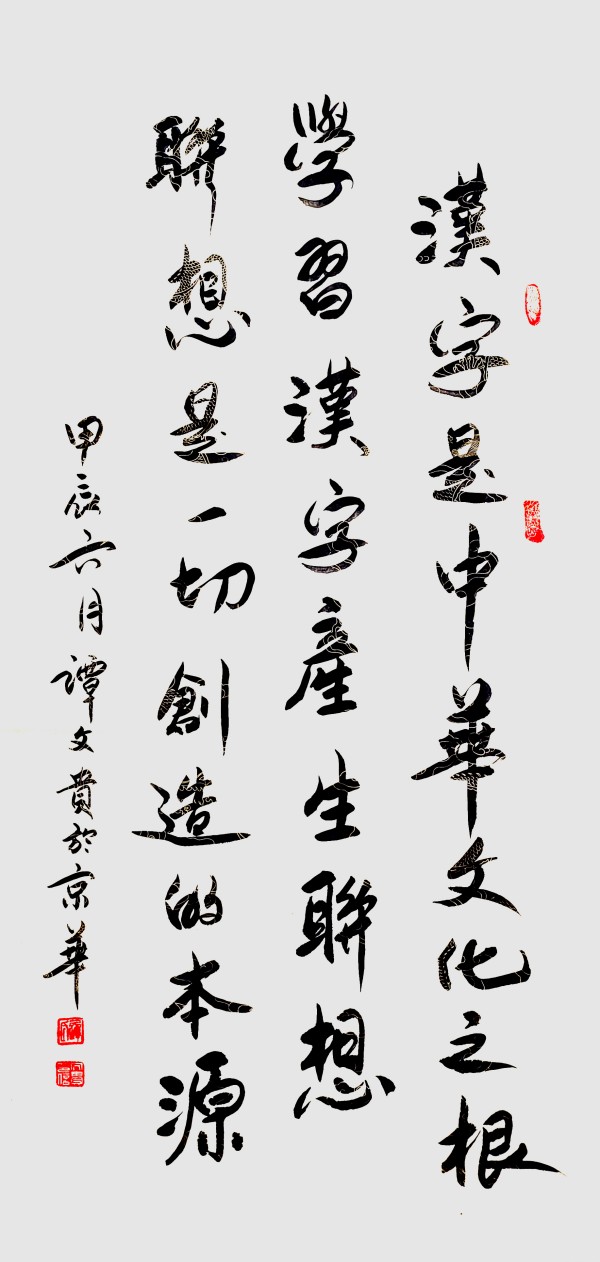 漢字是中華文化之根
學習漢字産生聯想
聯想是一切創造的本源
甲辰六月譚文貴於京華